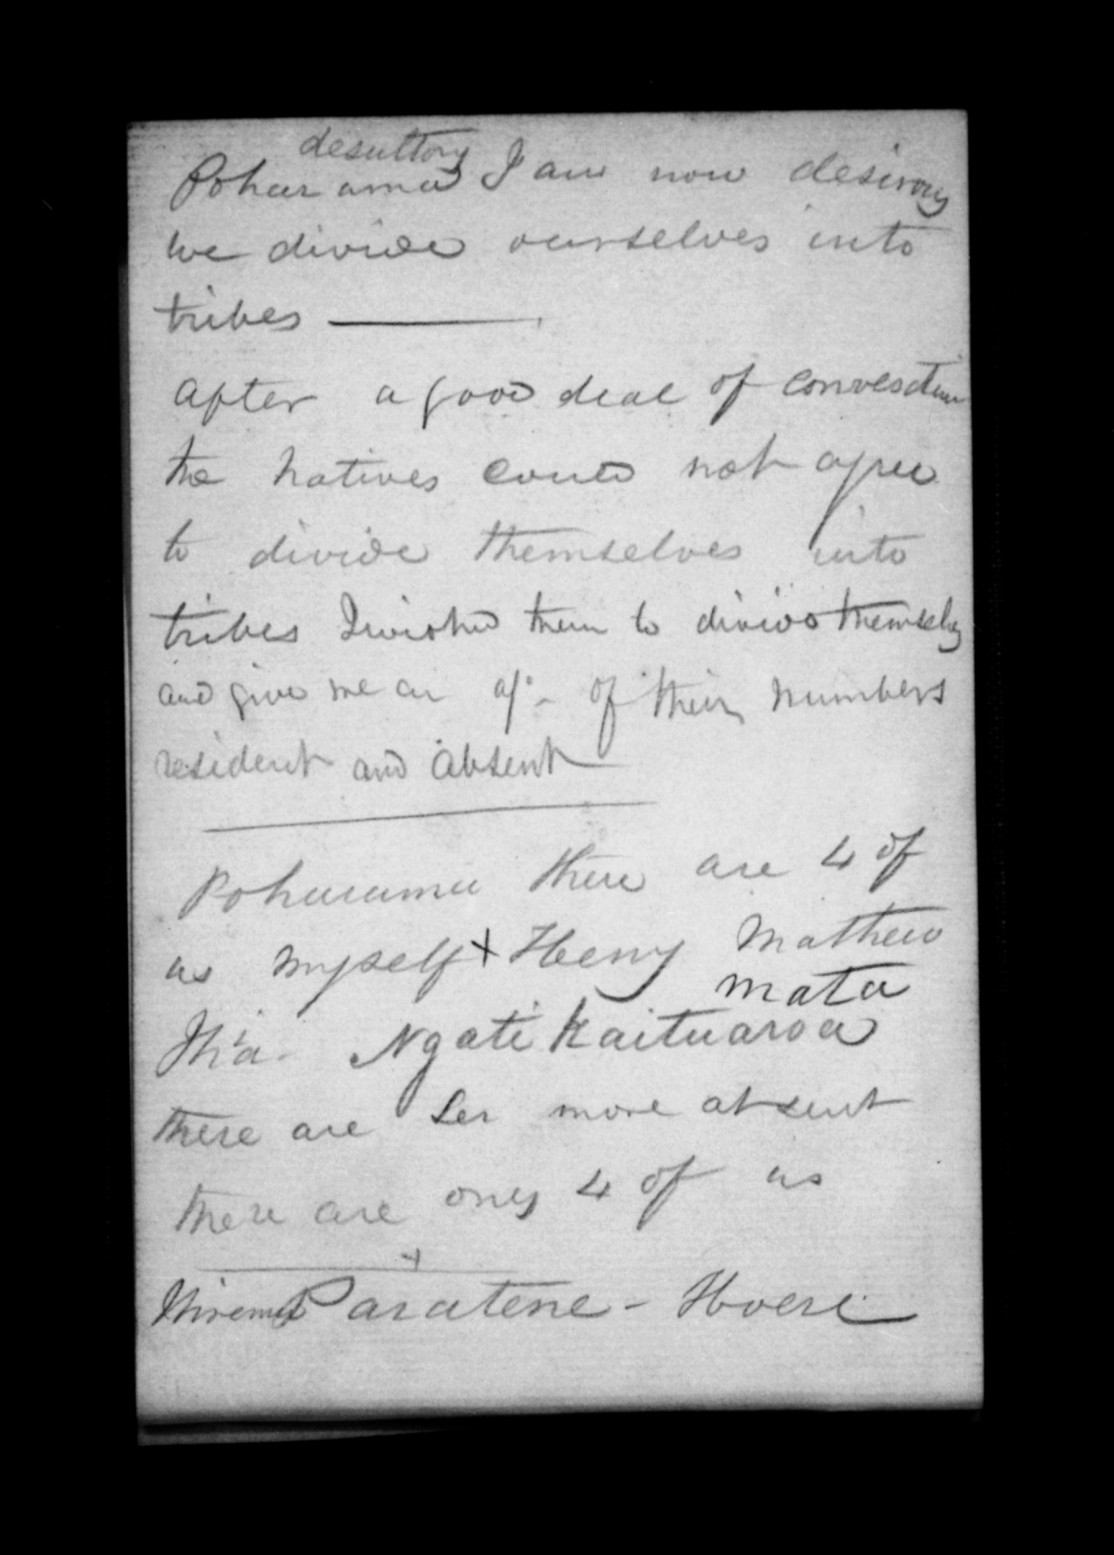 desultory
Poharama I am now desirous
we divide ourselves into
tribes
after a good deal of
the natives could not agree
to divide themselves into
tribes I wished them to divide themselves
and give me an a/c of their numbers
resident and absent
Poharama there are 4 of
us myself + Henry Mathew
mata
Ihia Ngati Kaituaroa
there are more absent
there are only 4 of us
+
Paratene - Hoera